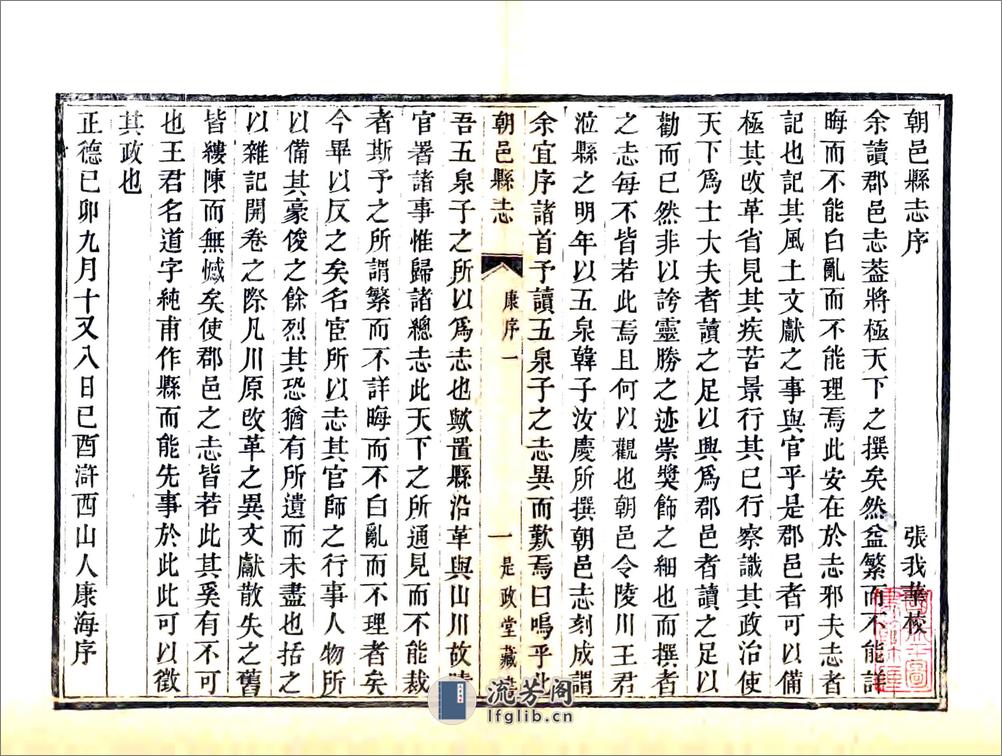 朝邑縣志序
張我華校
余讀郡邑志葢將極天下之撰矣然益繁而不能詳
晦而不能白亂而不能理焉此安在於志邪夫志者
記也記其風土文獻之事與官乎是郡邑者可以備
極其改革省見其疾苦景行其已行察識其政使
天下爲士大夫者讀之足以興爲郡邑者讀之足以
勸而已然非以誇靈勝之迹崇奬飾之細也而撰
之志每不皆若此焉且何以觀也朝邑令陵川王君
涖縣之明年以五泉韓子汝慶所撰朝邑志刻成謂
余宜序諸首予讀五泉子之志異而歎焉曰嗚乎此
朝邑縣志
康序
一
一
是政堂藏
吾五泉子之所以爲志也歟置縣沿革與山川故蹟
官署諸事惟歸諸總志此天下之所通見而不能裁
者斯予之所謂繁而不詳晦而不白亂而不理者矣
今畢以反之矣名宦所以志其官師之行事人物所
以備其豪俊之餘烈其恐猶有所遺而未盡也括之
以雜記開卷之際凡川原改革之異文獻散失之舊
皆縷陳而無憾矣使郡邑之志皆若此其奚有不可
也王君名道字純甫作縣而能先事於此此可以徵
其政也
正德己卯九月十又八日己酉滸西山人康海序
流芳阁
lfglib.cn